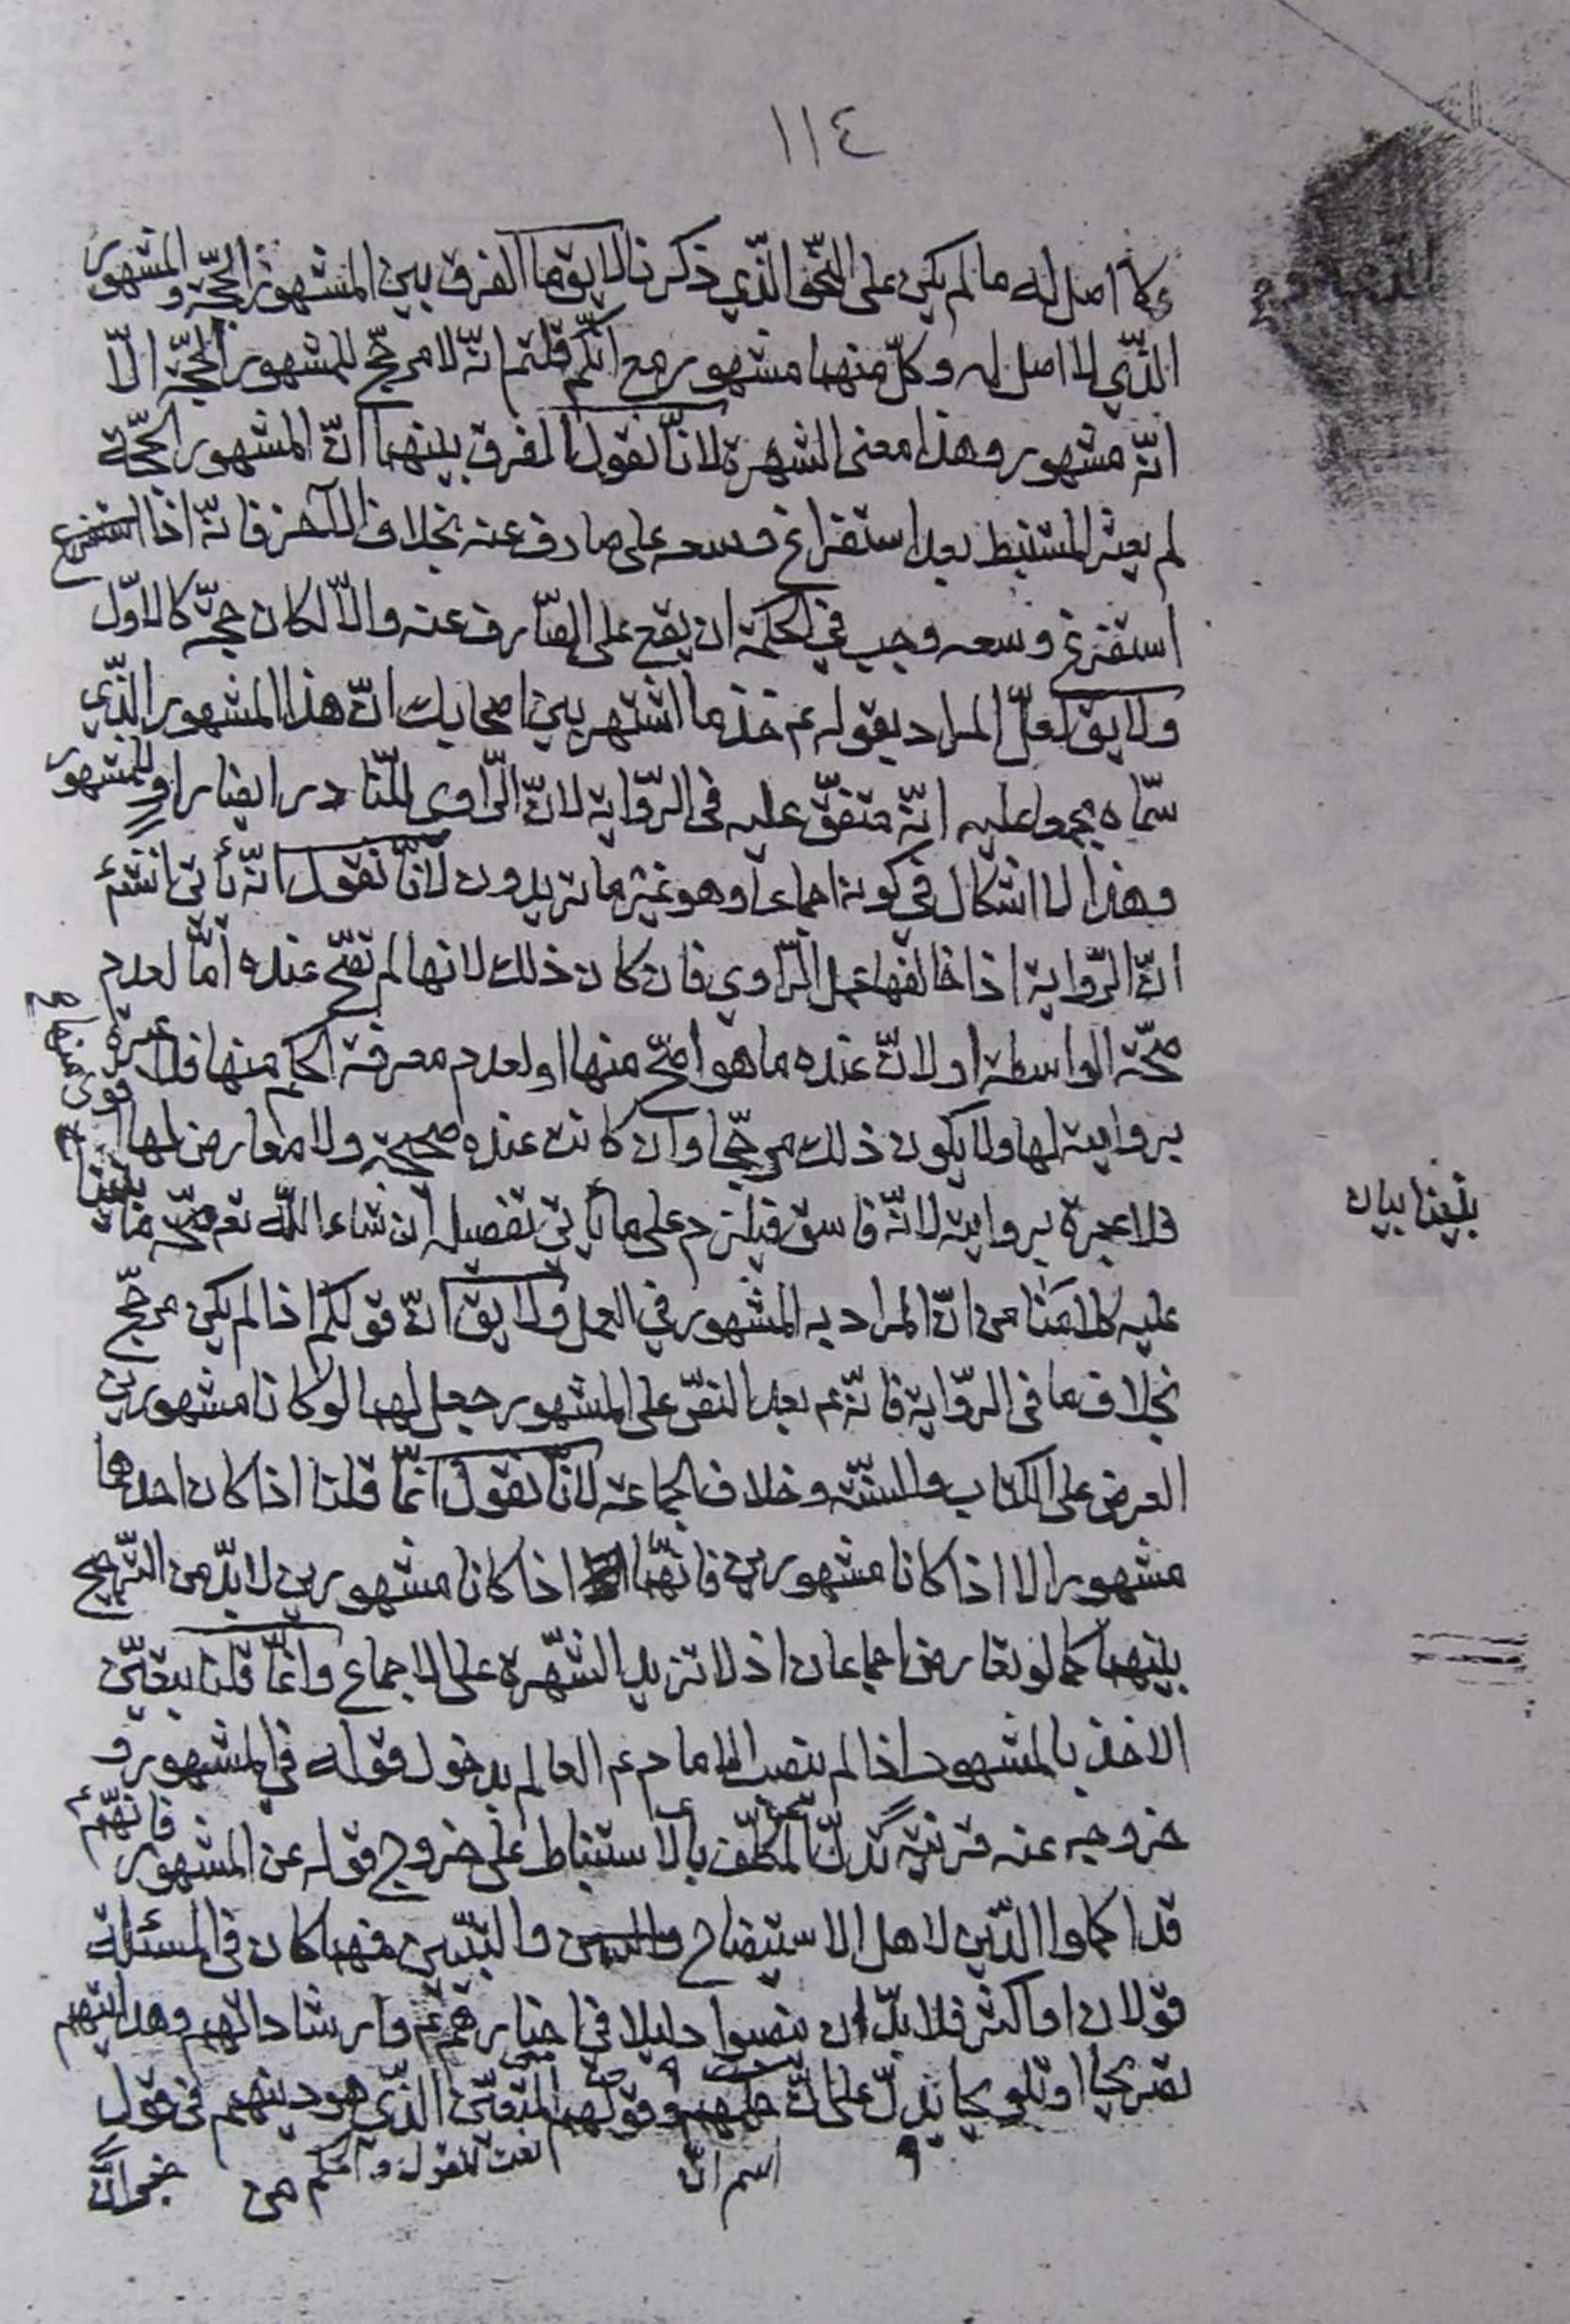 ١١٤
لا اصل له ما لم يكن على النحو الذي ذكرنا لا يق ما الفرق بين المشهور الحجّة والمشهور
الذّي لا اصل له وكلّ منهما مشهور مع انّكم قلتم انّه لا مرجّح للمشهور الحجّة الّا
انّه مشهور وهذا معنى الشهرة لانّا نقول الفرق بينهما انّ المشهور الحجّة
لم يعثر المستنبط بعد استفراغ وسعه على صارف عنه بخلاف الآخر فانّه اذا استفرغ
استفرغ وسعه وجب في الحكمة ان يقع على الصّارف عنه والّا لكان حجّة كالاوّل
ولا يق لعلّ المراد بقوله ع خذ ما اشتهر بين اصحابك انّ هذا المشهور الذّي
سمّاه مجمعا عليه انّه متفق عليه في الرّواية لانّ الرّاوى للنّادر ايضا راوٍ للمشهور
وهذا لا اشكال في كونه اجماعا وهو غير ما تريدون لانّا نقول انّه يأتي انش
انّ الرّواية اذا خالفها عمل الرّاوي فان كان ذلك لانها لم تصّح عنده امّا لعدم
صحّة الواسطة او لانّ عنده ما هو اصّح منها او لعدم معرفة الحكم منها فلا عبرة
بروايته لها ولا يكون ذلك مرجّحا وان كانت عنده صحيحة ولا معارض لها
فلا عبرة بروايته لانّه فاسق فيلزم على ما يأتي تفصيله ان شاء اللّه تع صحّة ما
عليه كلامنا من انّ المراد به المشهور في العمل ولا يق انّ قولكم اذا لم يكن مرجّح
بخلاف ما في الرّواية فانّه ع بعد النصّ على المشهور جعل لهما لو كانا مشهورين
العرض على الكتاب والسنّة وخلاف الجماعة لانّا نقول انّما قلنا اذا كان احدهما
مشهورا لا اذا كانا مشهورين فانهّما اذا كانا مشهورين لا بدّ من التّرجيح
بينهما كما لو تعارض اجماعان اذ لا تزيد الشهّرة على الاجماع وانّما قلنا يتعيّن
الاخذ بالمشهور اذا لم ينصب الامام ع العالم بدخول قوله في المشهور و
خروجه عنه قرينة تدلّ المكلّف بالاستنباط على خروج قوله عن المشهور فانهّم ع
قد اكملوا الدّين لاهل الاستيضاح والتبيّن فمهما كان في المسئلة
قولان او اكثر فلا بدّ ان ينصبوا دليلا في اخبارهم ع وارشاداتهم وهدايتهم
تصريحا او تلويحا يدلّ على انّ حكمهم وقولهم المتعيّن الذّي هو دينهم ع في قول
اسم انّ
نعت للقول والحكم
من
خبر انّ
بلغنا بيان